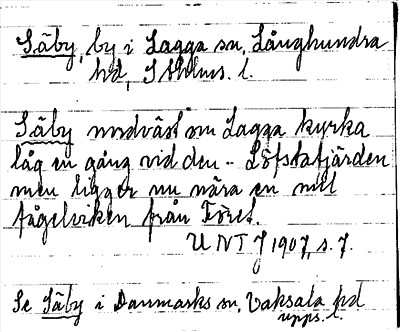 Säby, by i Lagga sn, Långhundra
hd, Sthlms. l.
Säby nordväst om Lagga kyrka
låg en gång vid den - Löfstafjärden
men ligger nu nära en mil
fågelviken från Föret.
UNT J 1907, s. 7.
Se Säby i Danmarks sn, Vaksala hd
Upps. l.